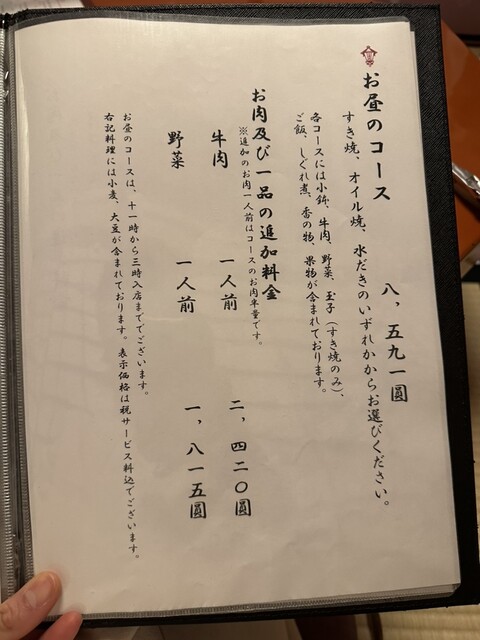 お昼のコース 八，五九一圓
すき焼、オイル焼、水だきのいずれかからお選びください。
各コースには小鉢、牛肉、野菜、玉子（すき焼のみ）、
ご飯、しぐれ煮、香の物、果物が含まれております。
お肉及び一品の追加料金
※追加のお肉一人前はコースのお肉半量です。
牛肉 一人前 二，四二〇圓
野菜 一人前 一，八一五圓
お昼のコースは、十一時から三時入店まででございます。
右記料理には小麦、大豆が含まれております。表示価格は税サービス料込でございます。